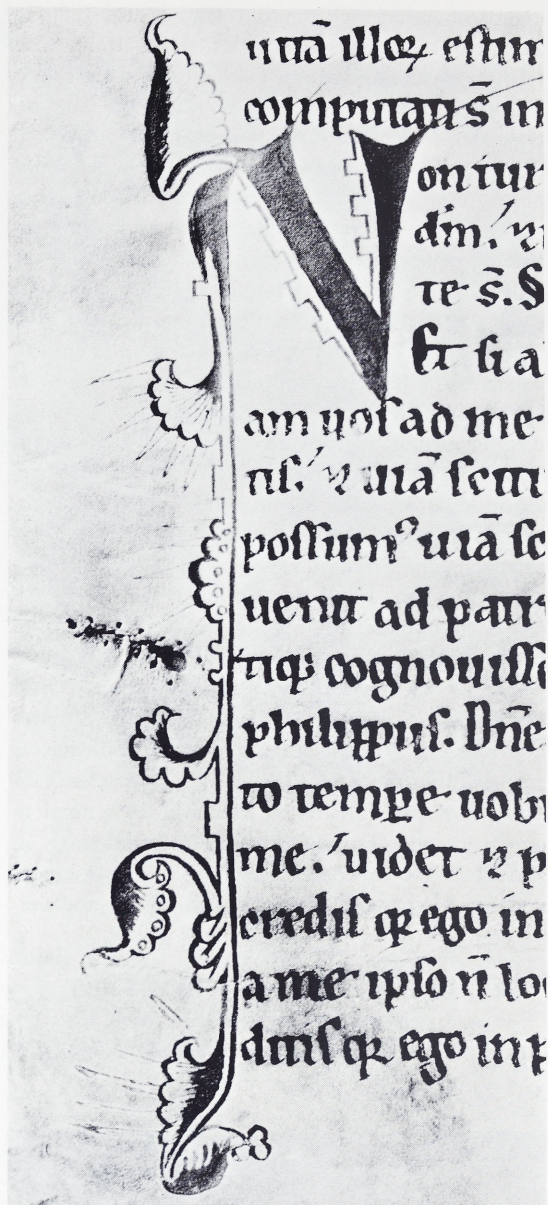 uitā illoꝝ estim
computati s̄ in
Non tur
dm̄. ⁊
te s̄. §
Et si a
am uos ad me
tis. ⁊ uiā sciti
possumꝰ uiā sc
uenit ad patr
tiqꝫ cognouisse
philippus. Dn̄e
to tempꝑe uobi
me. uidet ⁊ p
credis qꝛ ego in
a me ipso n̄ lo
ditis qꝛ ego in p